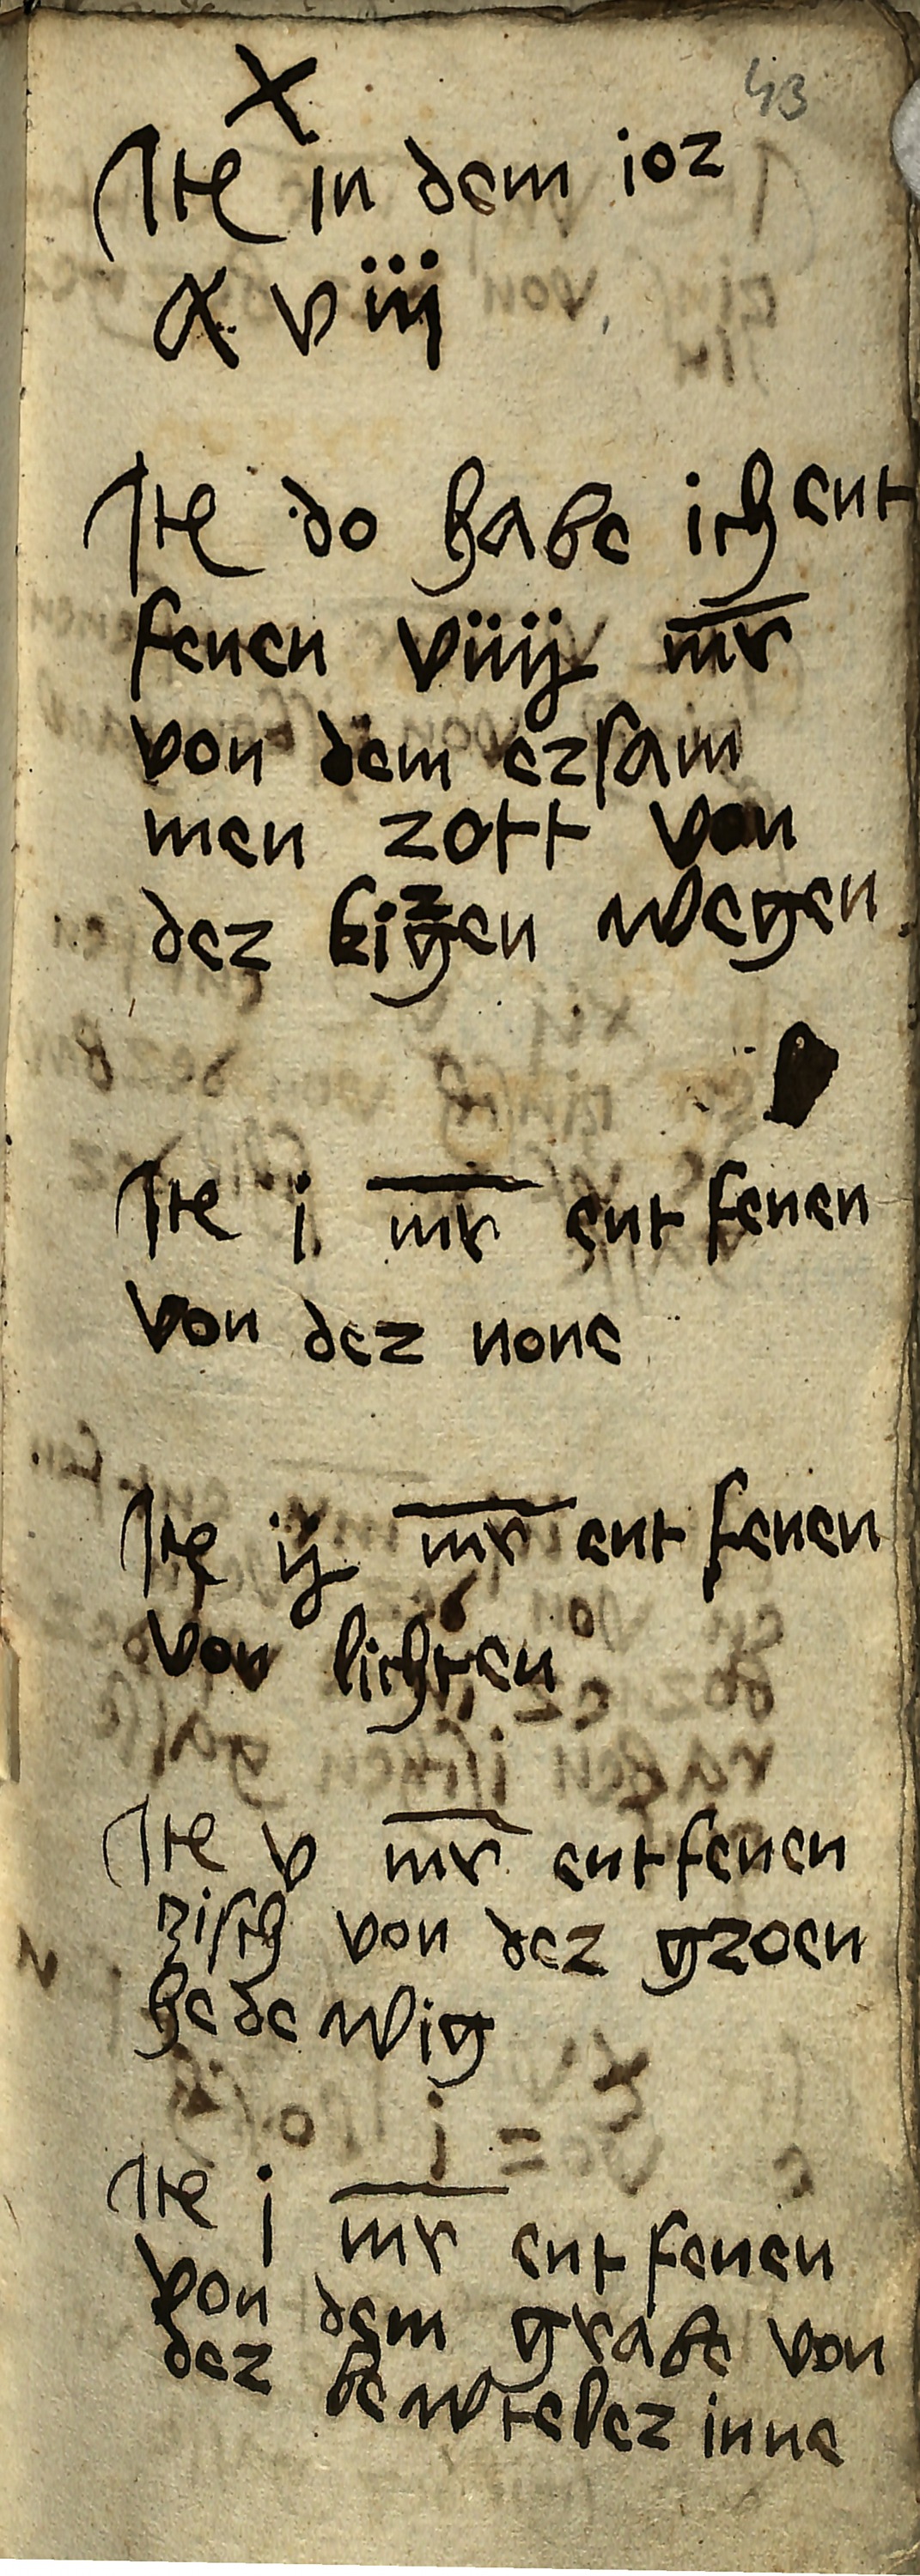 43
X
Ite in dem ior
x viij
Ite do habe ich ent
fenen viiij mr
von dem ersam
men rott von
der kirgen wegen
Ite j mr ent fenen
von der none
Ite ij mr ent fenen
von lichten
Ite v mr entfenen
risch von der groen
hede wig
Ite j mr ent fenen
von dem grabe von
der bewteler inne